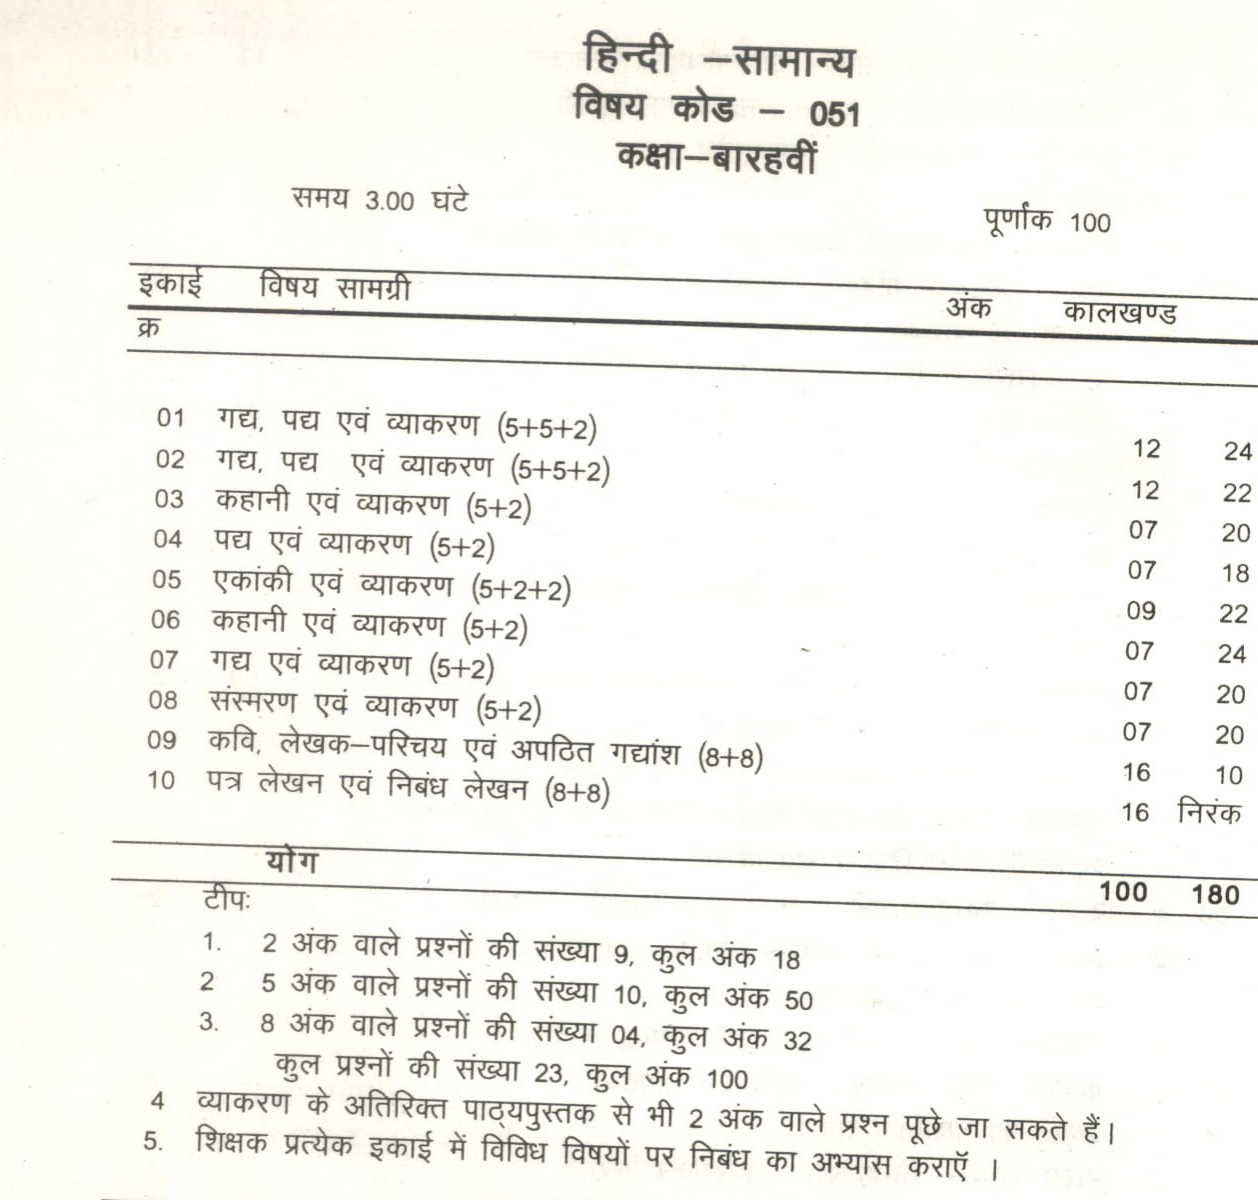 हिन्दी –सामान्य
विषय कोड – 051
कक्षा–बारहवीं
समय 3.00 घंटे पूर्णांक 100
इकाई विषय सामग्री अंक कालखण्ड
क्र
01 गद्य, पद्य एवं व्याकरण (5+5+2) 12 24
02 गद्य, पद्य एवं व्याकरण (5+5+2) 12 22
03 कहानी एवं व्याकरण (5+2) 07 20
04 पद्य एवं व्याकरण (5+2) 07 18
05 एकांकी एवं व्याकरण (5+2+2) 09 22
06 कहानी एवं व्याकरण (5+2) 07 24
07 गद्य एवं व्याकरण (5+2) 07 20
08 संस्मरण एवं व्याकरण (5+2) 07 20
09 कवि, लेखक–परिचय एवं अपठित गद्यांश (8+8) 16 10
10 पत्र लेखन एवं निबंध लेखन (8+8) 16 निरंक
योग 100 180
टीपः
1. 2 अंक वाले प्रश्नों की संख्या 9, कुल अंक 18
2 5 अंक वाले प्रश्नों की संख्या 10, कुल अंक 50
3. 8 अंक वाले प्रश्नों की संख्या 04, कुल अंक 32
कुल प्रश्नों की संख्या 23, कुल अंक 100
4 व्याकरण के अतिरिक्त पाठ्यपुस्तक से भी 2 अंक वाले प्रश्न पूछे जा सकते हैं।
5. शिक्षक प्रत्येक इकाई में विविध विषयों पर निबंध का अभ्यास कराऍ ।